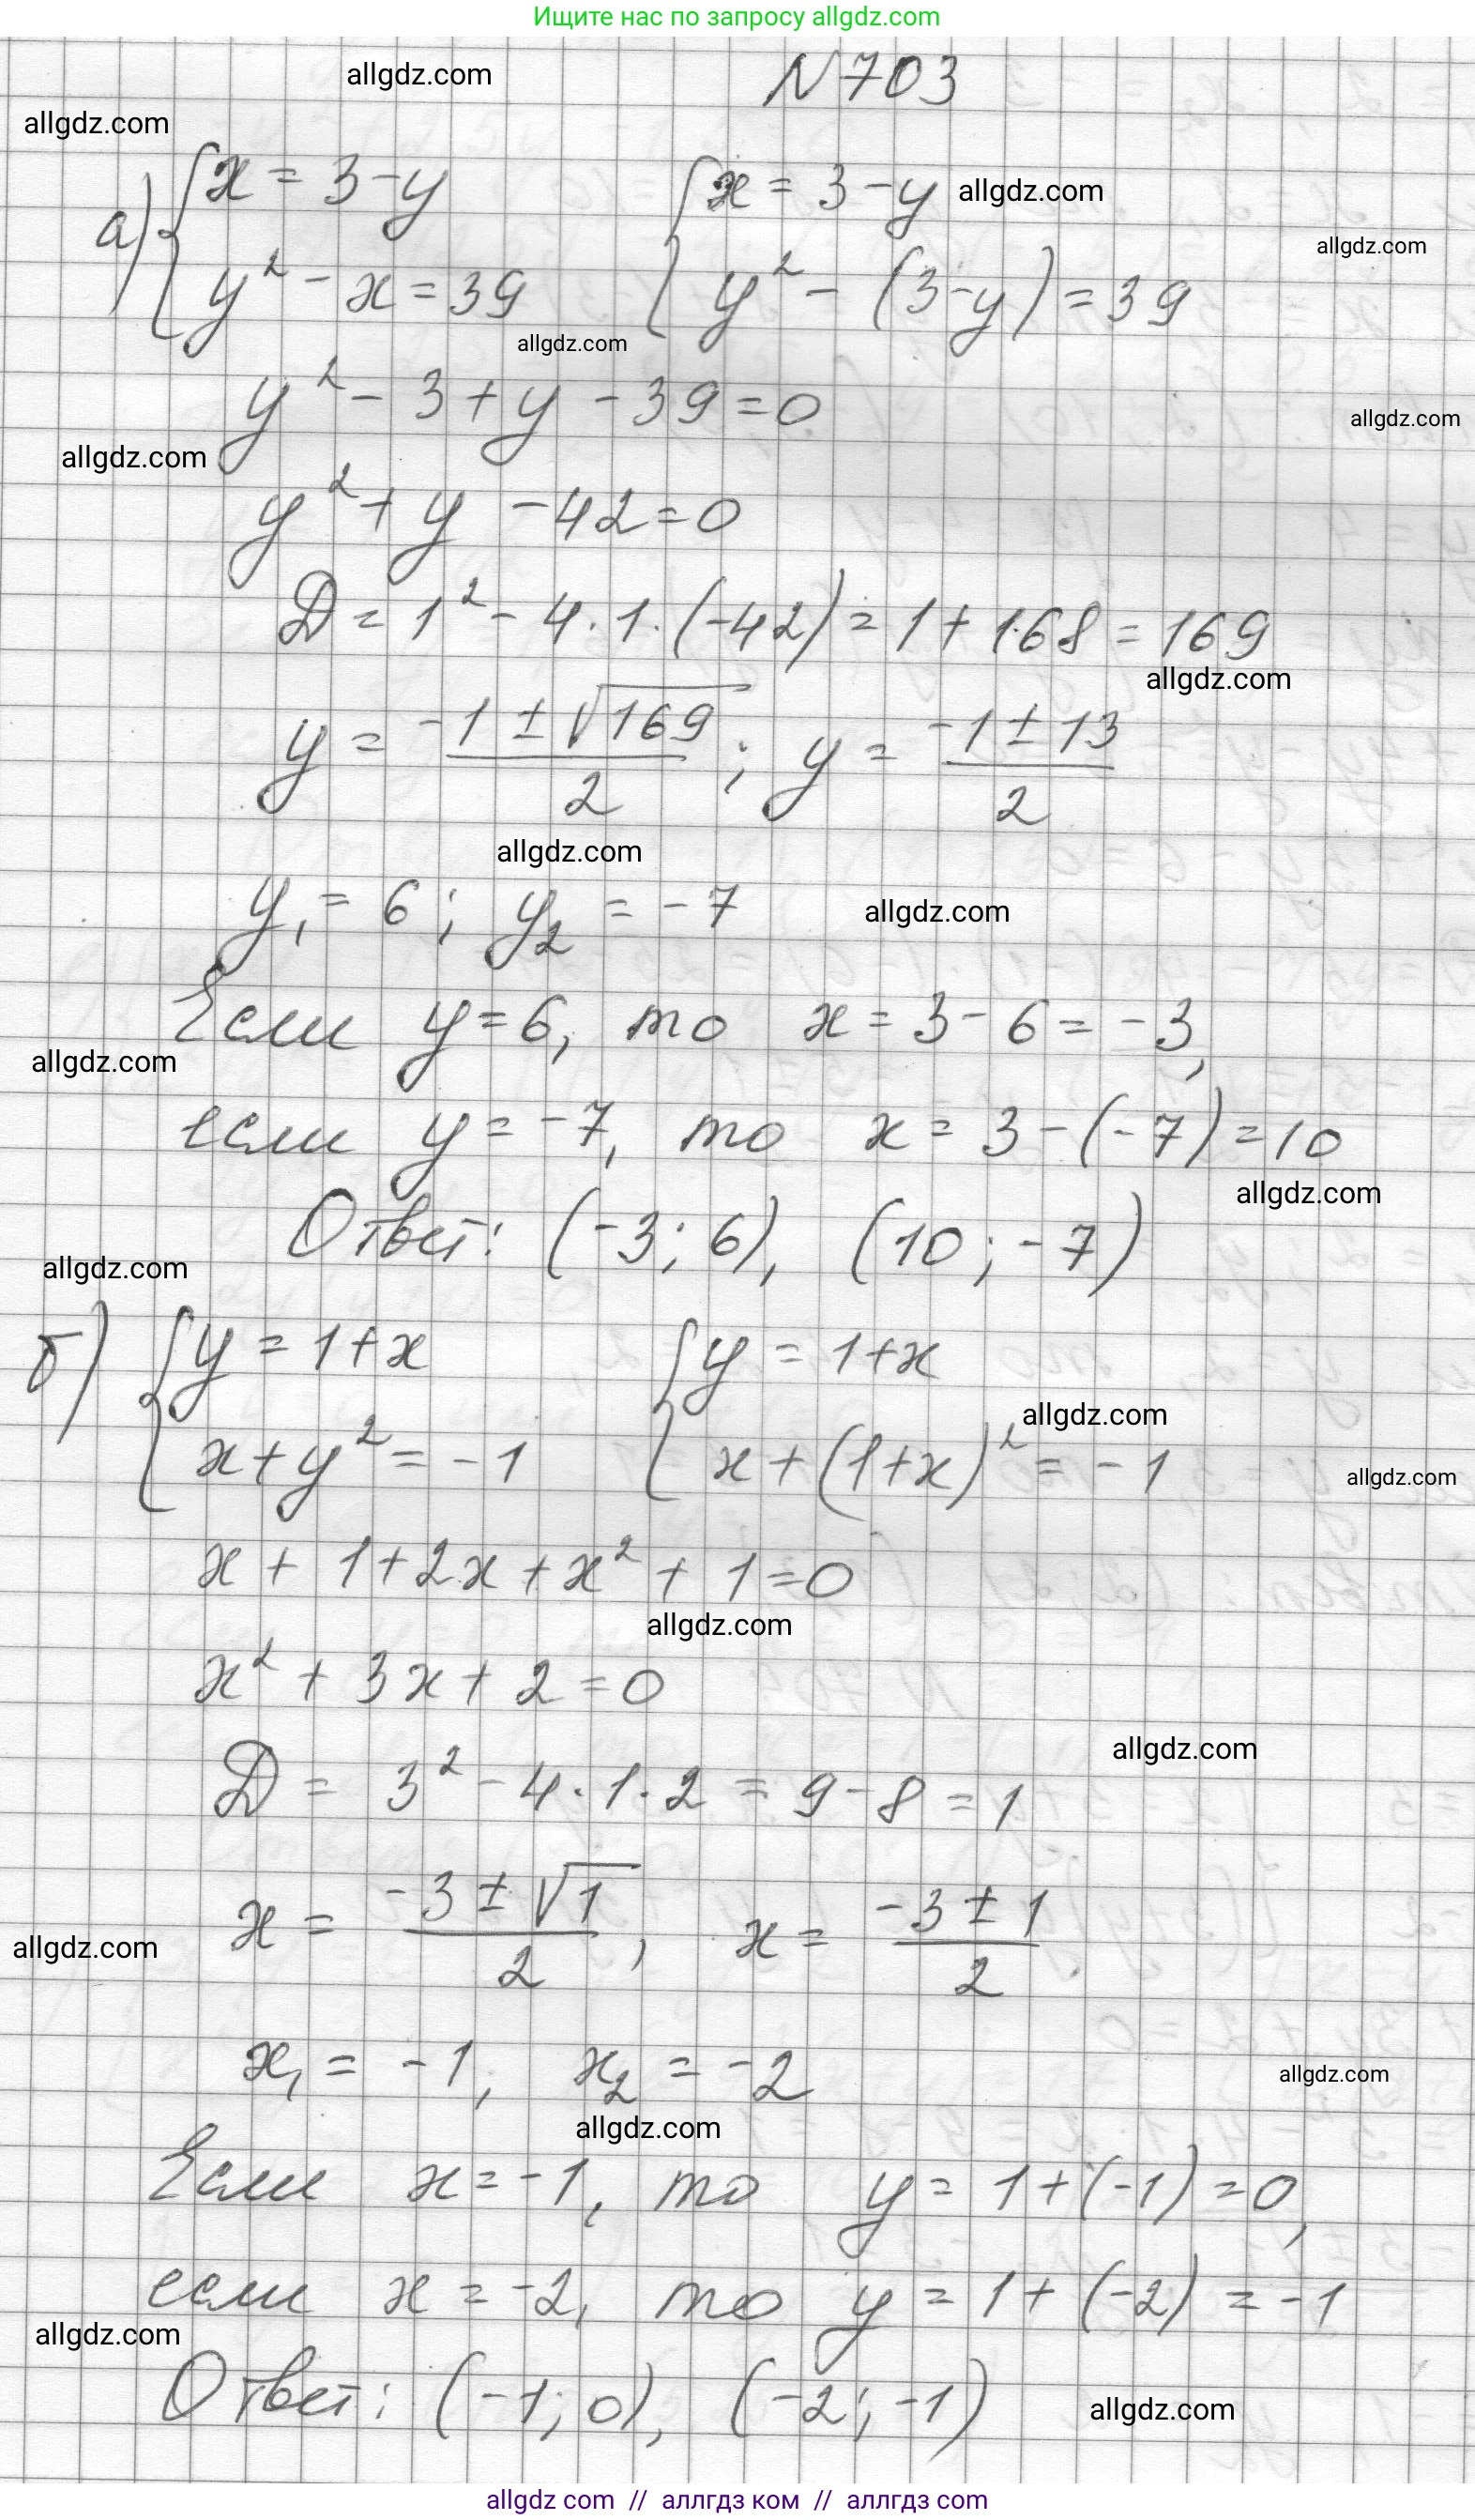 Ищите нас по запросу allgdz.com
allgdz.com N 703
allgdz.com
а) { x = 3 - y { x = 3 - y allgdz.com
allgdz.com
y² - x = 39 y² - (3 - y) = 39
allgdz.com
y² - 3 + y - 39 = 0
allgdz.com
allgdz.com
y² + y - 42 = 0
D = 1² - 4 · 1 · (-42) = 1 + 168 = 169
allgdz.com
y = (-1 ± √169)/2 ; y = (-1 ± 13)/2
allgdz.com
y₁ = 6 ; y₂ = -7 allgdz.com
Если y = 6, то x = 3 - 6 = -3,
allgdz.com
если y = -7, то x = 3 - (-7) = 10
allgdz.com
Ответ: (-3; 6), (10; -7)
allgdz.com
б) { y = 1 + x { y = 1 + x
allgdz.com
x + y² = -1 x + (1 + x)² = -1
allgdz.com
x + 1 + 2x + x² + 1 = 0
allgdz.com
x² + 3x + 2 = 0
allgdz.com
D = 3² - 4 · 1 · 2 = 9 - 8 = 1
x = (-3 ± √1)/2 , x = (-3 ± 1)/2
allgdz.com
x₁ = -1, x₂ = -2
allgdz.com
allgdz.com
Если x = -1, то y = 1 + (-1) = 0,
если x = -2, то y = 1 + (-2) = -1
allgdz.com
Ответ: (-1; 0), (-2; -1)
allgdz.com
allgdz com // аллгдз ком // аллгдз com